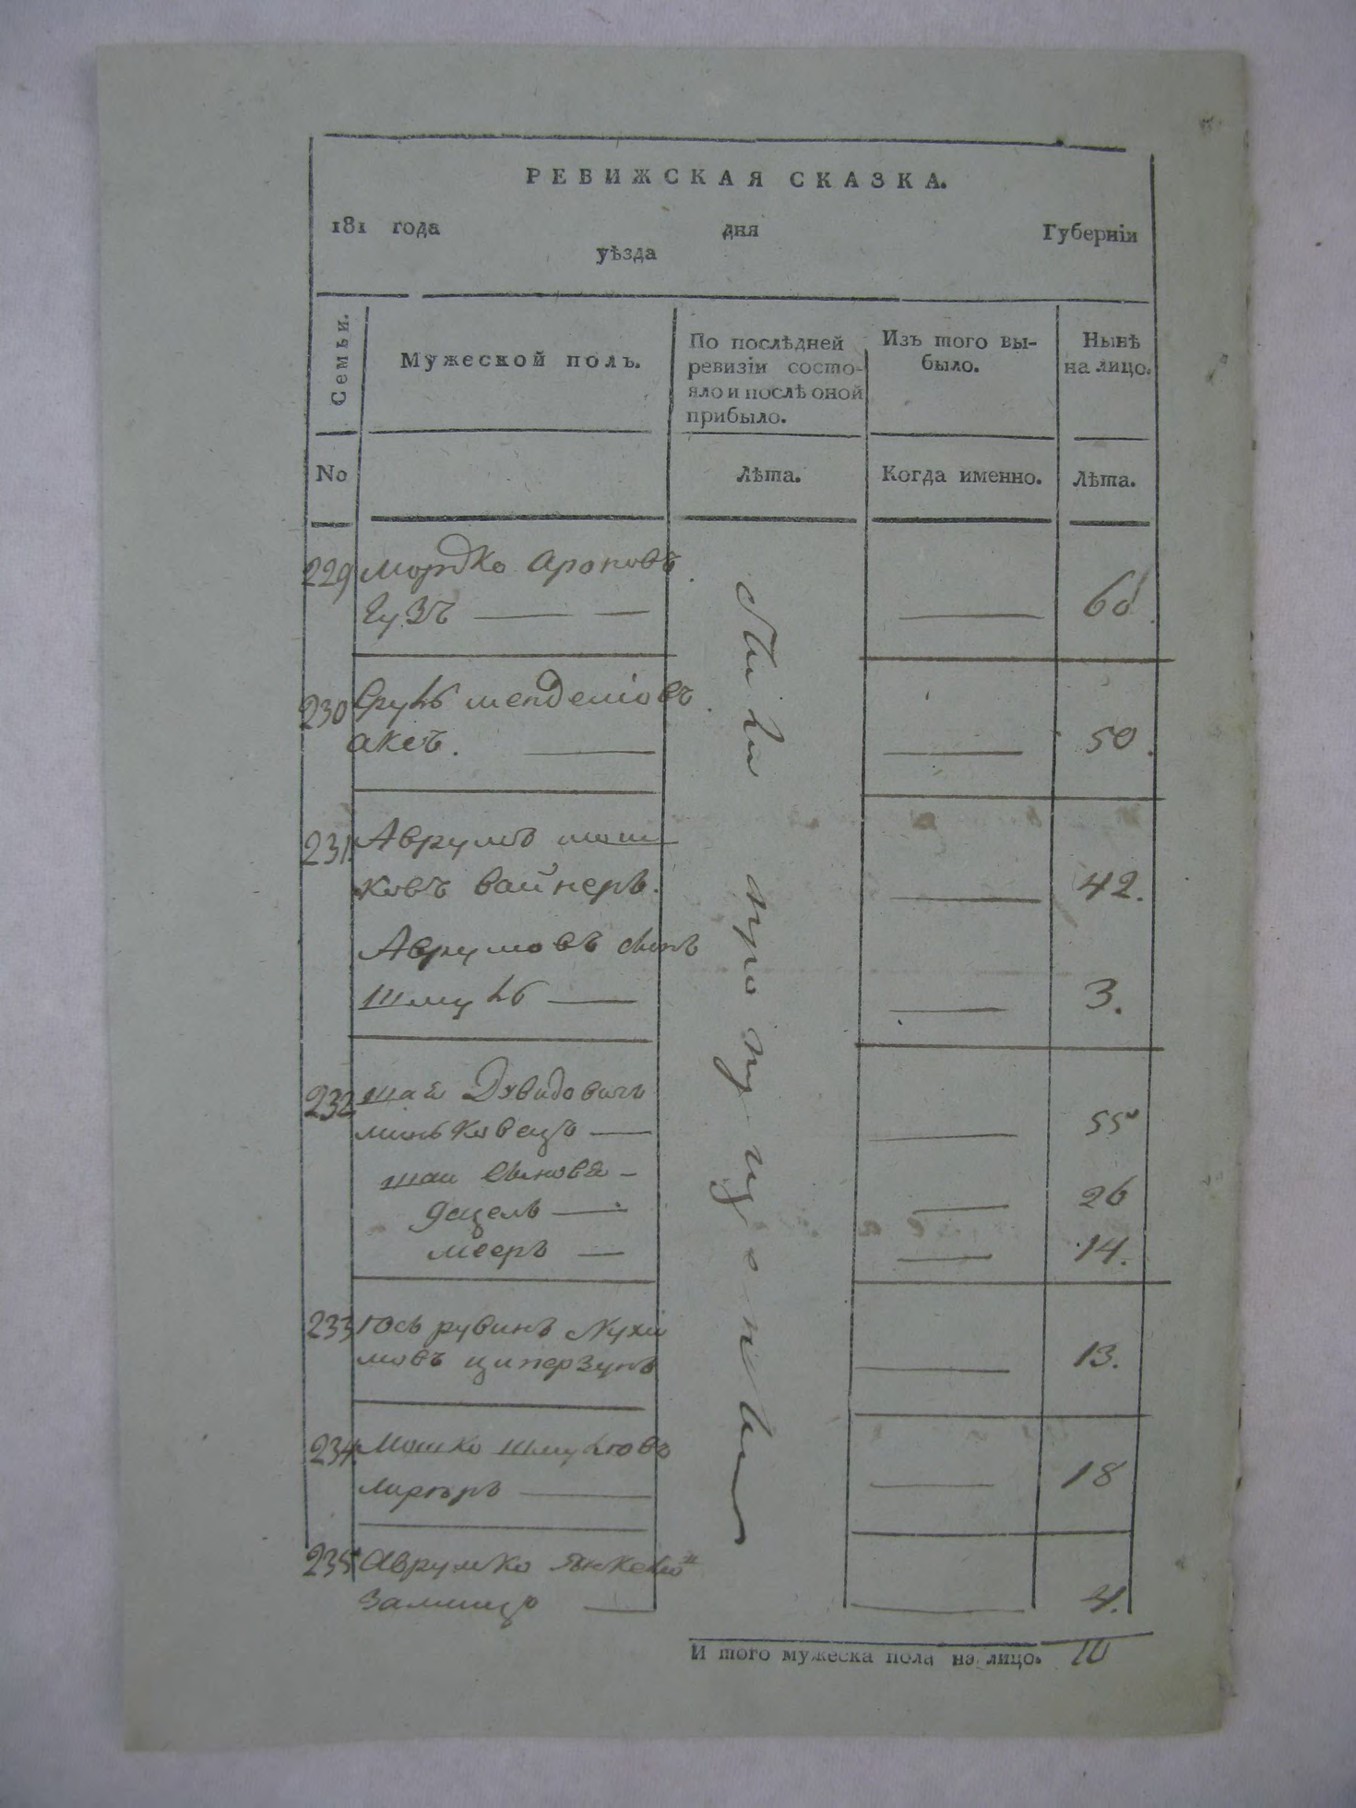 РЕВИЖСКАЯ СКАЗКА.
181 года дня Губерніи
уѣзда
Семьи.
Мужеской полъ.
По послѣдней
ревизіи состо-
яло и послѣ оной
прибыло.
Изъ того вы-
было.
Нынѣ
на лицо.
No
лѣта.
Когда именно.
лѣта.
229 мордко ароновъ
гузъ 60
230 менделіовъ
аксъ. 50.
231. Аврумъ мош
ковъ вайнеръ. 42.
Аврумовъ сынъ
шмуль 3.
232 шая Давидовичъ
миньковецъ 55
шаи сынова
26
мееръ 14.
233 Іось рувинъ Нухи
мовъ циперзунъ 13.
234 Мошко шмуліовъ
18
235 Аврумко Янкеліо
4.
были пропущенны
И того мужеска пола на лицо. 10